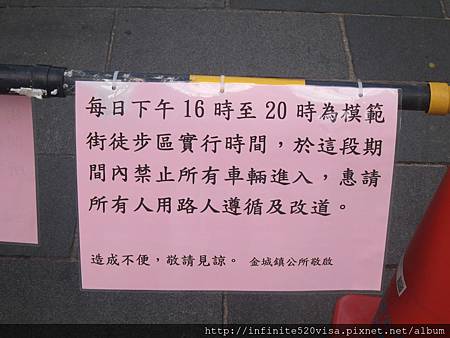 每日下午 16 時至 20 時為模範
街徒步區實行時間，於這段期
間內禁止所有車輛進入，惠請
所有人用路人遵循及改道。
造成不便，敬請見諒。 金城鎮公所敬啟
http://infinite520visa.pixnet.net/album